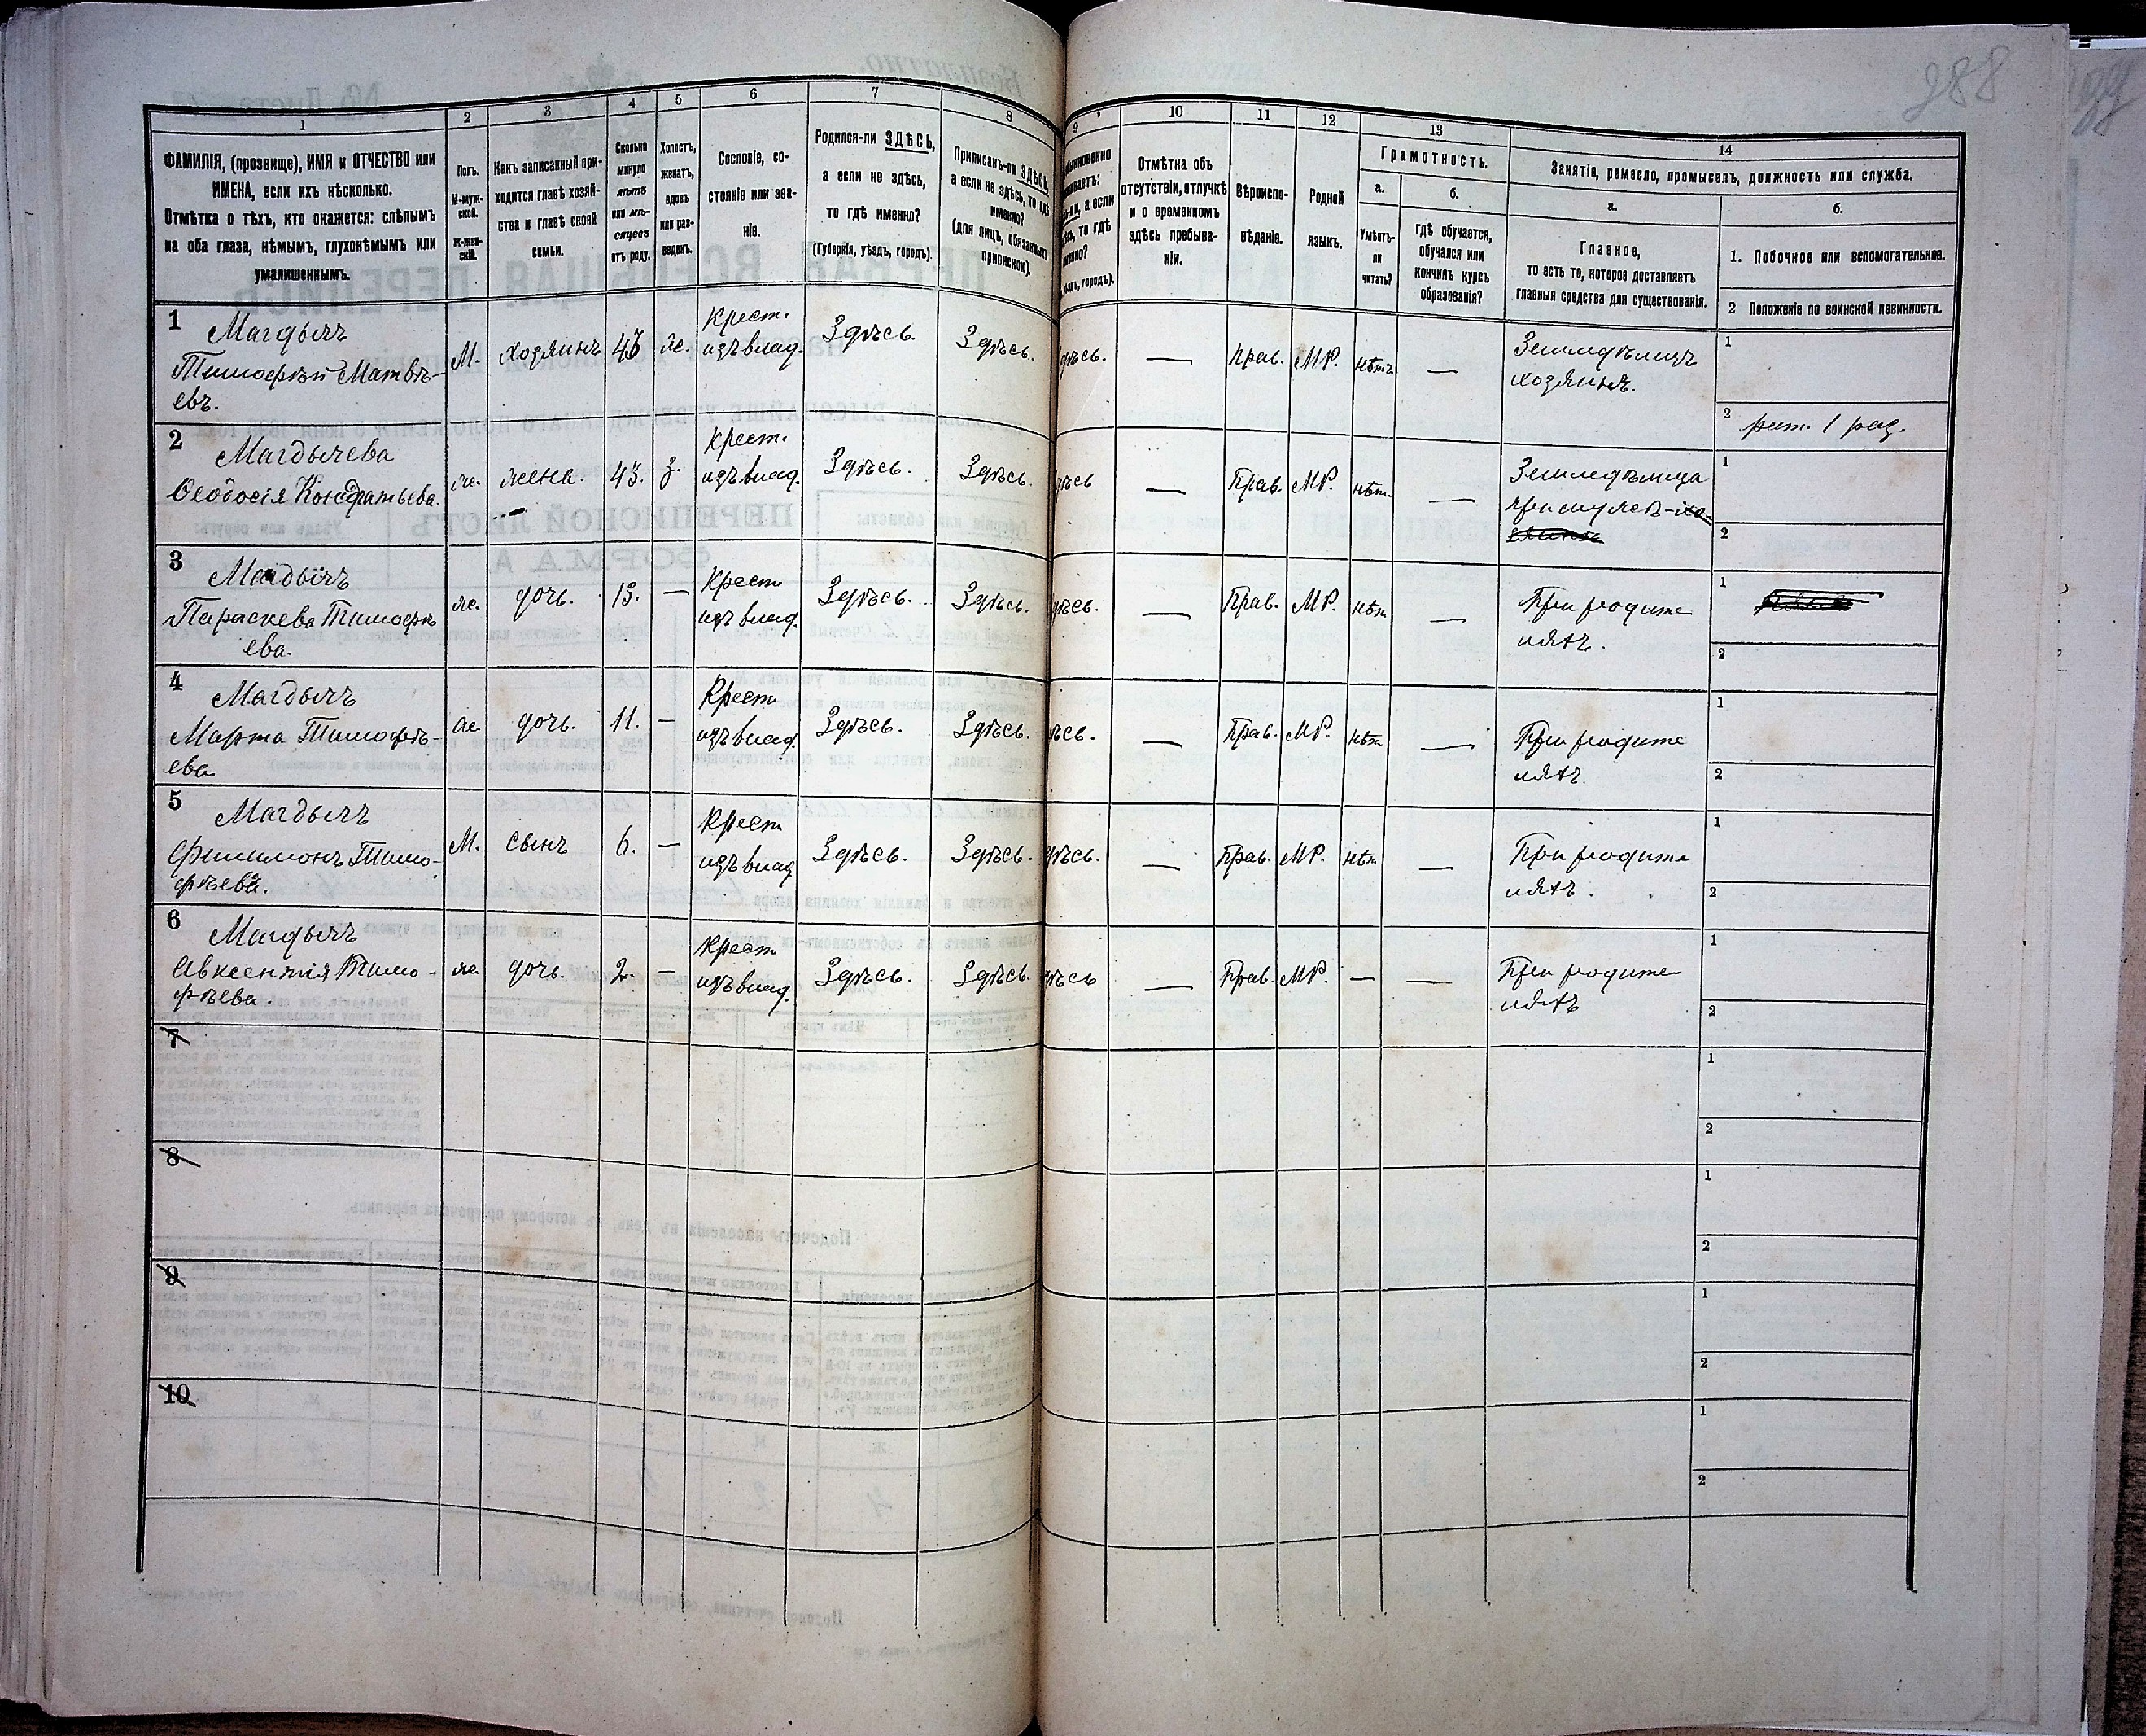 288
1 2 3 4 5 6 7 8 9 10 11 12 13 14
ФАМИЛІЯ, (прозвище), ИМЯ и ОТЧЕСТВО или
ИМЕНА, если ихъ нѣсколько.
Отмѣтка о тѣхъ, кто окажется: слѣпымъ
на оба глаза, нѣмымъ, глухонѣмымъ или
умалишеннымъ.
Полъ.
М-муж-
ской.
Ж-жен-
скій.
Какъ записанный при-
ходится главѣ хозяй-
ства и главѣ своей
семьи.
Сколько
минуло
лѣтъ
или мѣ-
сяцевъ
отъ роду.
Холостъ,
женатъ,
вдовъ
или раз-
веденъ.
Сословіе, со-
стояніе или зва-
ніе.
Родился-ли ЗДѢСЬ,
а если не здѣсь,
то гдѣ именно?
(Губернія, уѣздъ, городъ).
Приписанъ-ли ЗДѢСЬ,
а если не здѣсь, то гдѣ
именно?
(для лицъ, обязанныхъ
припиской).
а если
то гдѣ
городъ).
Отмѣтка объ
отсутствіи, отлучкѣ
и о временномъ
здѣсь пребыва-
ніи.
Вѣроиспо-
вѣданіе.
Родной
языкъ.
Грамотность.
а.
Умѣетъ-
ли
читать?
б.
гдѣ обучается,
обучался или
кончилъ курсъ
образованія?
Занятіе, ремесло, промыселъ, должность или служба.
а.
Главное,
то есть то, которое доставляетъ
главныя средства для существованія.
б.
1. Побочное или вспомогательное.
2 Положеніе по воинской повинности.
1 Магдычъ
Тимофѣй Матвѣ-
евъ.
М. хозяинъ ж. Крест.
изъ влад. Здѣсь. Здѣсь. — Прав. МР. нѣтъ —
Земледѣлецъ
хозяинъ.
1
2 рат. 1 раз.
2 Магдычева
Ѳеодосія Кондратьева.
ж. жена. 43. з. Крест.
изъ влад. Здѣсь. Здѣсь. — Прав. МР. нѣт. —
Земледѣлица
при мужѣ
1
2
3 Магдычъ
Параскева Тимофѣ
ева.
ж. дочь. 13. — Крест
изъ влад. Здѣсь. Здѣсь. — Прав. МР. нѣт —
При родите
ляхъ.
1
2
4 Магдычъ
Марта Тимофѣ-
ева
ж. дочь. 11. — Крест
изъ влад. Здѣсь. Здѣсь. — Прав. МР. нѣт —
При родите
ляхъ
1
2
5 Магдычъ
Филимонъ Тимо-
фѣевъ.
М. сынъ 6. — Крест
изъ влад Здѣсь. Здѣсь. — Прав. МР. нѣт —
При родите
ляхъ.
1
2
6 Магдычъ
Авксентія Тимо-
фѣева.
ж. дочь. 2. — Крест
изъ влад. Здѣсь. Здѣсь. — Прав. МР. — —
При родите
ляхъ
1
2
7
1
2
8
1
2
9
1
2
10
1
2